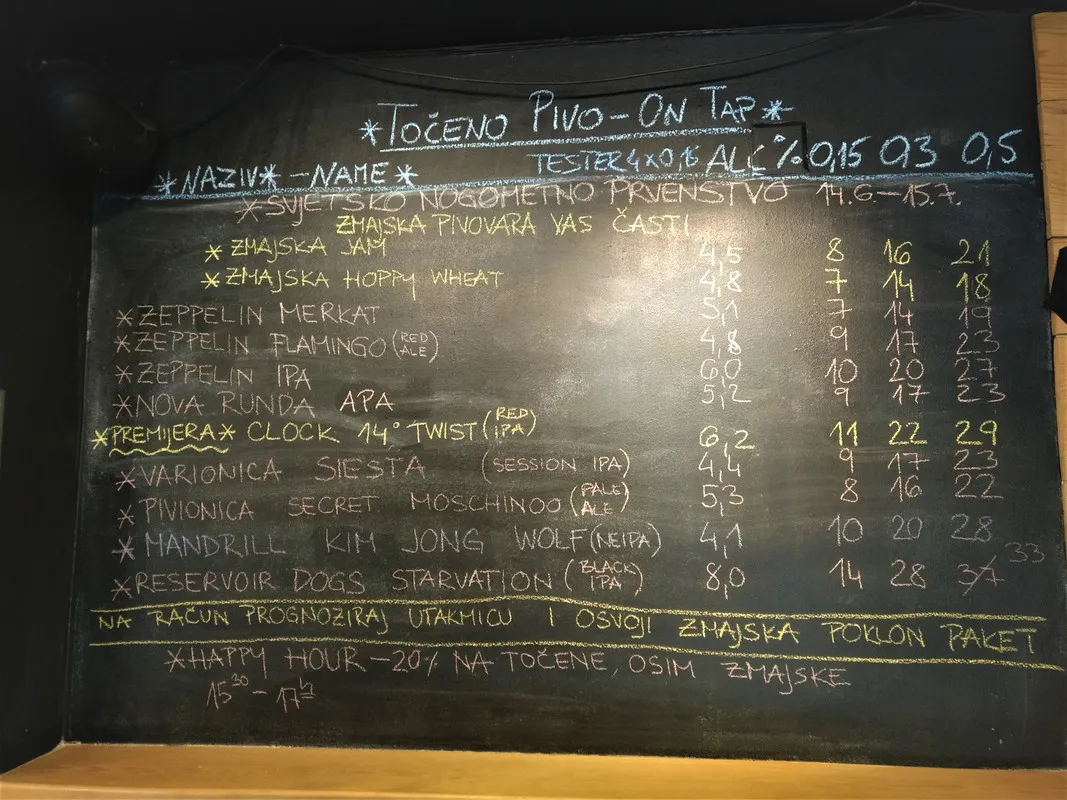 *TOČENO PIVO-ON TAP*
*NAZIV* -NAME* TESTER 4x0,15 ALC % 0,15 0,3 0,5
*SVJETSKO NOGOMETNO PRVENSTVO 14.6-15.7.
ZMAJSKA PIVOVARA VAS ČASTI
* ZMAJSKA JAM 4,5 8 16 21
* ZMAJSKA HOPPY WHEAT 4,8 7 14 18
*ZEPPELIN MERKAT 5,1 7 14 19
*ZEPPELIN FLAMINGO (RED ALE) 4,8 9 17 23
*ZEPPELIN IPA 6,0 10 20 27
*NOVA RUNDA APA 5,2 9 17 23
*PREMIJERA* CLOCK 14° TWIST (RED IPA) 6,2 11 22 29
*VARIONICA SIESTA (SESSION IPA) 4,4 9 17 23
* PIVIONICA SECRET MOSCHINOO (PALE ALE) 5,3 8 16 22
* MANDRILL KIM JONG WOLF (NEIPA) 4,1 10 20 28
*RESERVOIR DOGS STARVATION (BLACK IPA) 8,0 14 28 37 33
NA RAČUN PROGNOZIRAJ UTAKMICU I OSVOJI ZMAJSKA POKLON PAKET
*HAPPY HOUR -20% NA TOČENE, OSIM ZMAJSKE
15³⁰ - 17ʰ